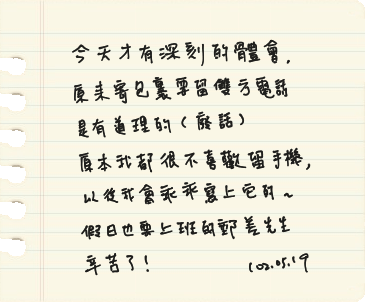 今天才有深刻的體會，
原來寄包裹要留雙方電話
是有道理的（廢話）
原本我都很不喜歡留手機，
以後我會乖乖寫上它的～
假日也要上班的郵差先生
辛苦了！ 102.05.19